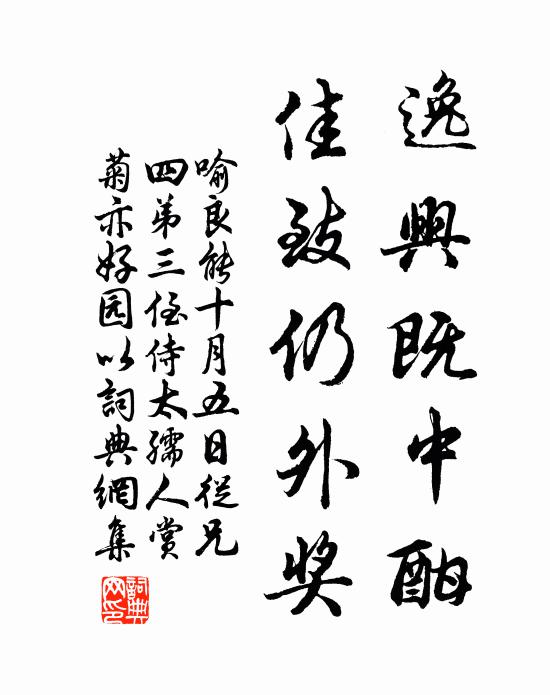 逸興既中酣
佳致仍外奖
喻良能十月五日従兄
四弟三侄侍太孺人赏
菊亦好园以詞典網集
詞典網印